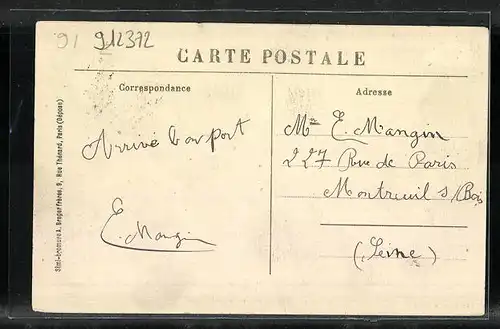 91 912372
CARTE POSTALE
Correspondance
Adresse
Arrivé bon port
E. Mangin
Mme E. Mangin
227 Rue de Paris
Montreuil s/Bois
(Seine)
Simi-bromure A. Breger Frères, 9, Rue Thénard, Paris (Déposé)